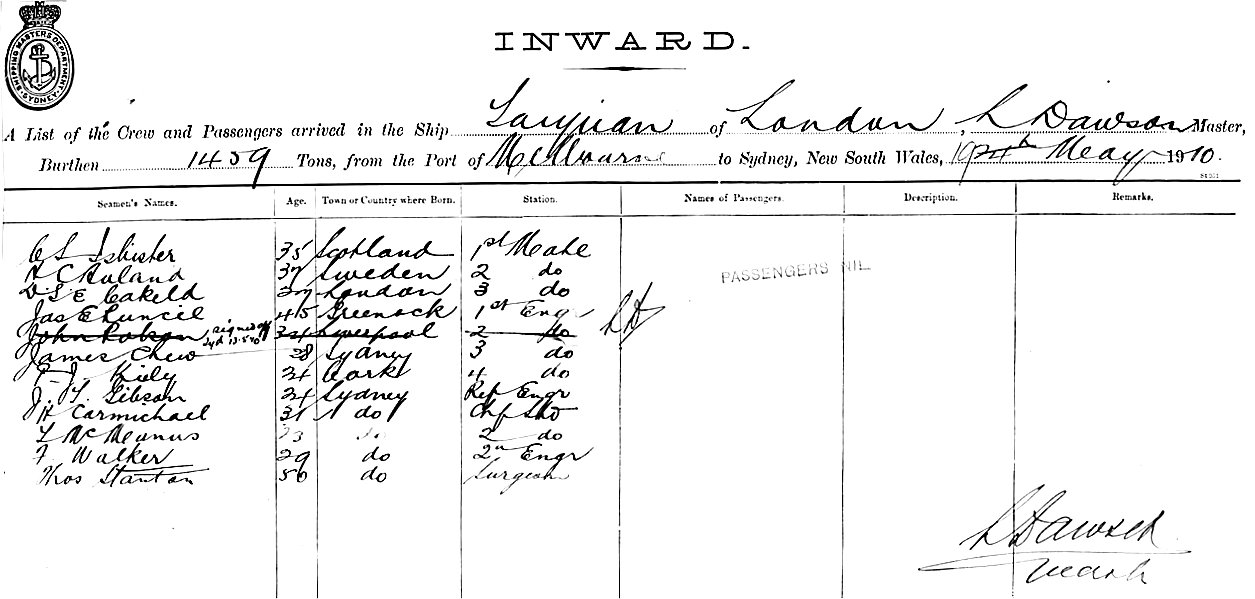 SHIPPING MASTERS DEPARTMENT SYDNEY
INWARD.
A List of the Crew and Passengers arrived in the Ship Taiyuan of London, L Dawson Master,
Burthen 1459 Tons, from the Port of Melbourne to Sydney, New South Wales, May 1910.
Seamen's Names. Age. Town or Country where Born. Station. Names of Passengers. Description. Remarks.
C S Isbister 35 Scotland 1st Mate
H C 37 Sweden 2 do
PASSENGERS NIL
D S E 27 London 3 do
Jas E 45 Greenock 1st Engr
John Robson signed off Syd 13.5.10 34 Liverpool 2 do LD
James Chew 28 Sydney 3 do
F J Kiely 24 Cork 4 do
J. Y. Gibson 24 Sydney Ref Engr
H Carmichael 31 do
T McManus 23 do 2 do
F Walker 29 do 2n Engr
Thos Stanton 50 do Surgeon
L Dawson